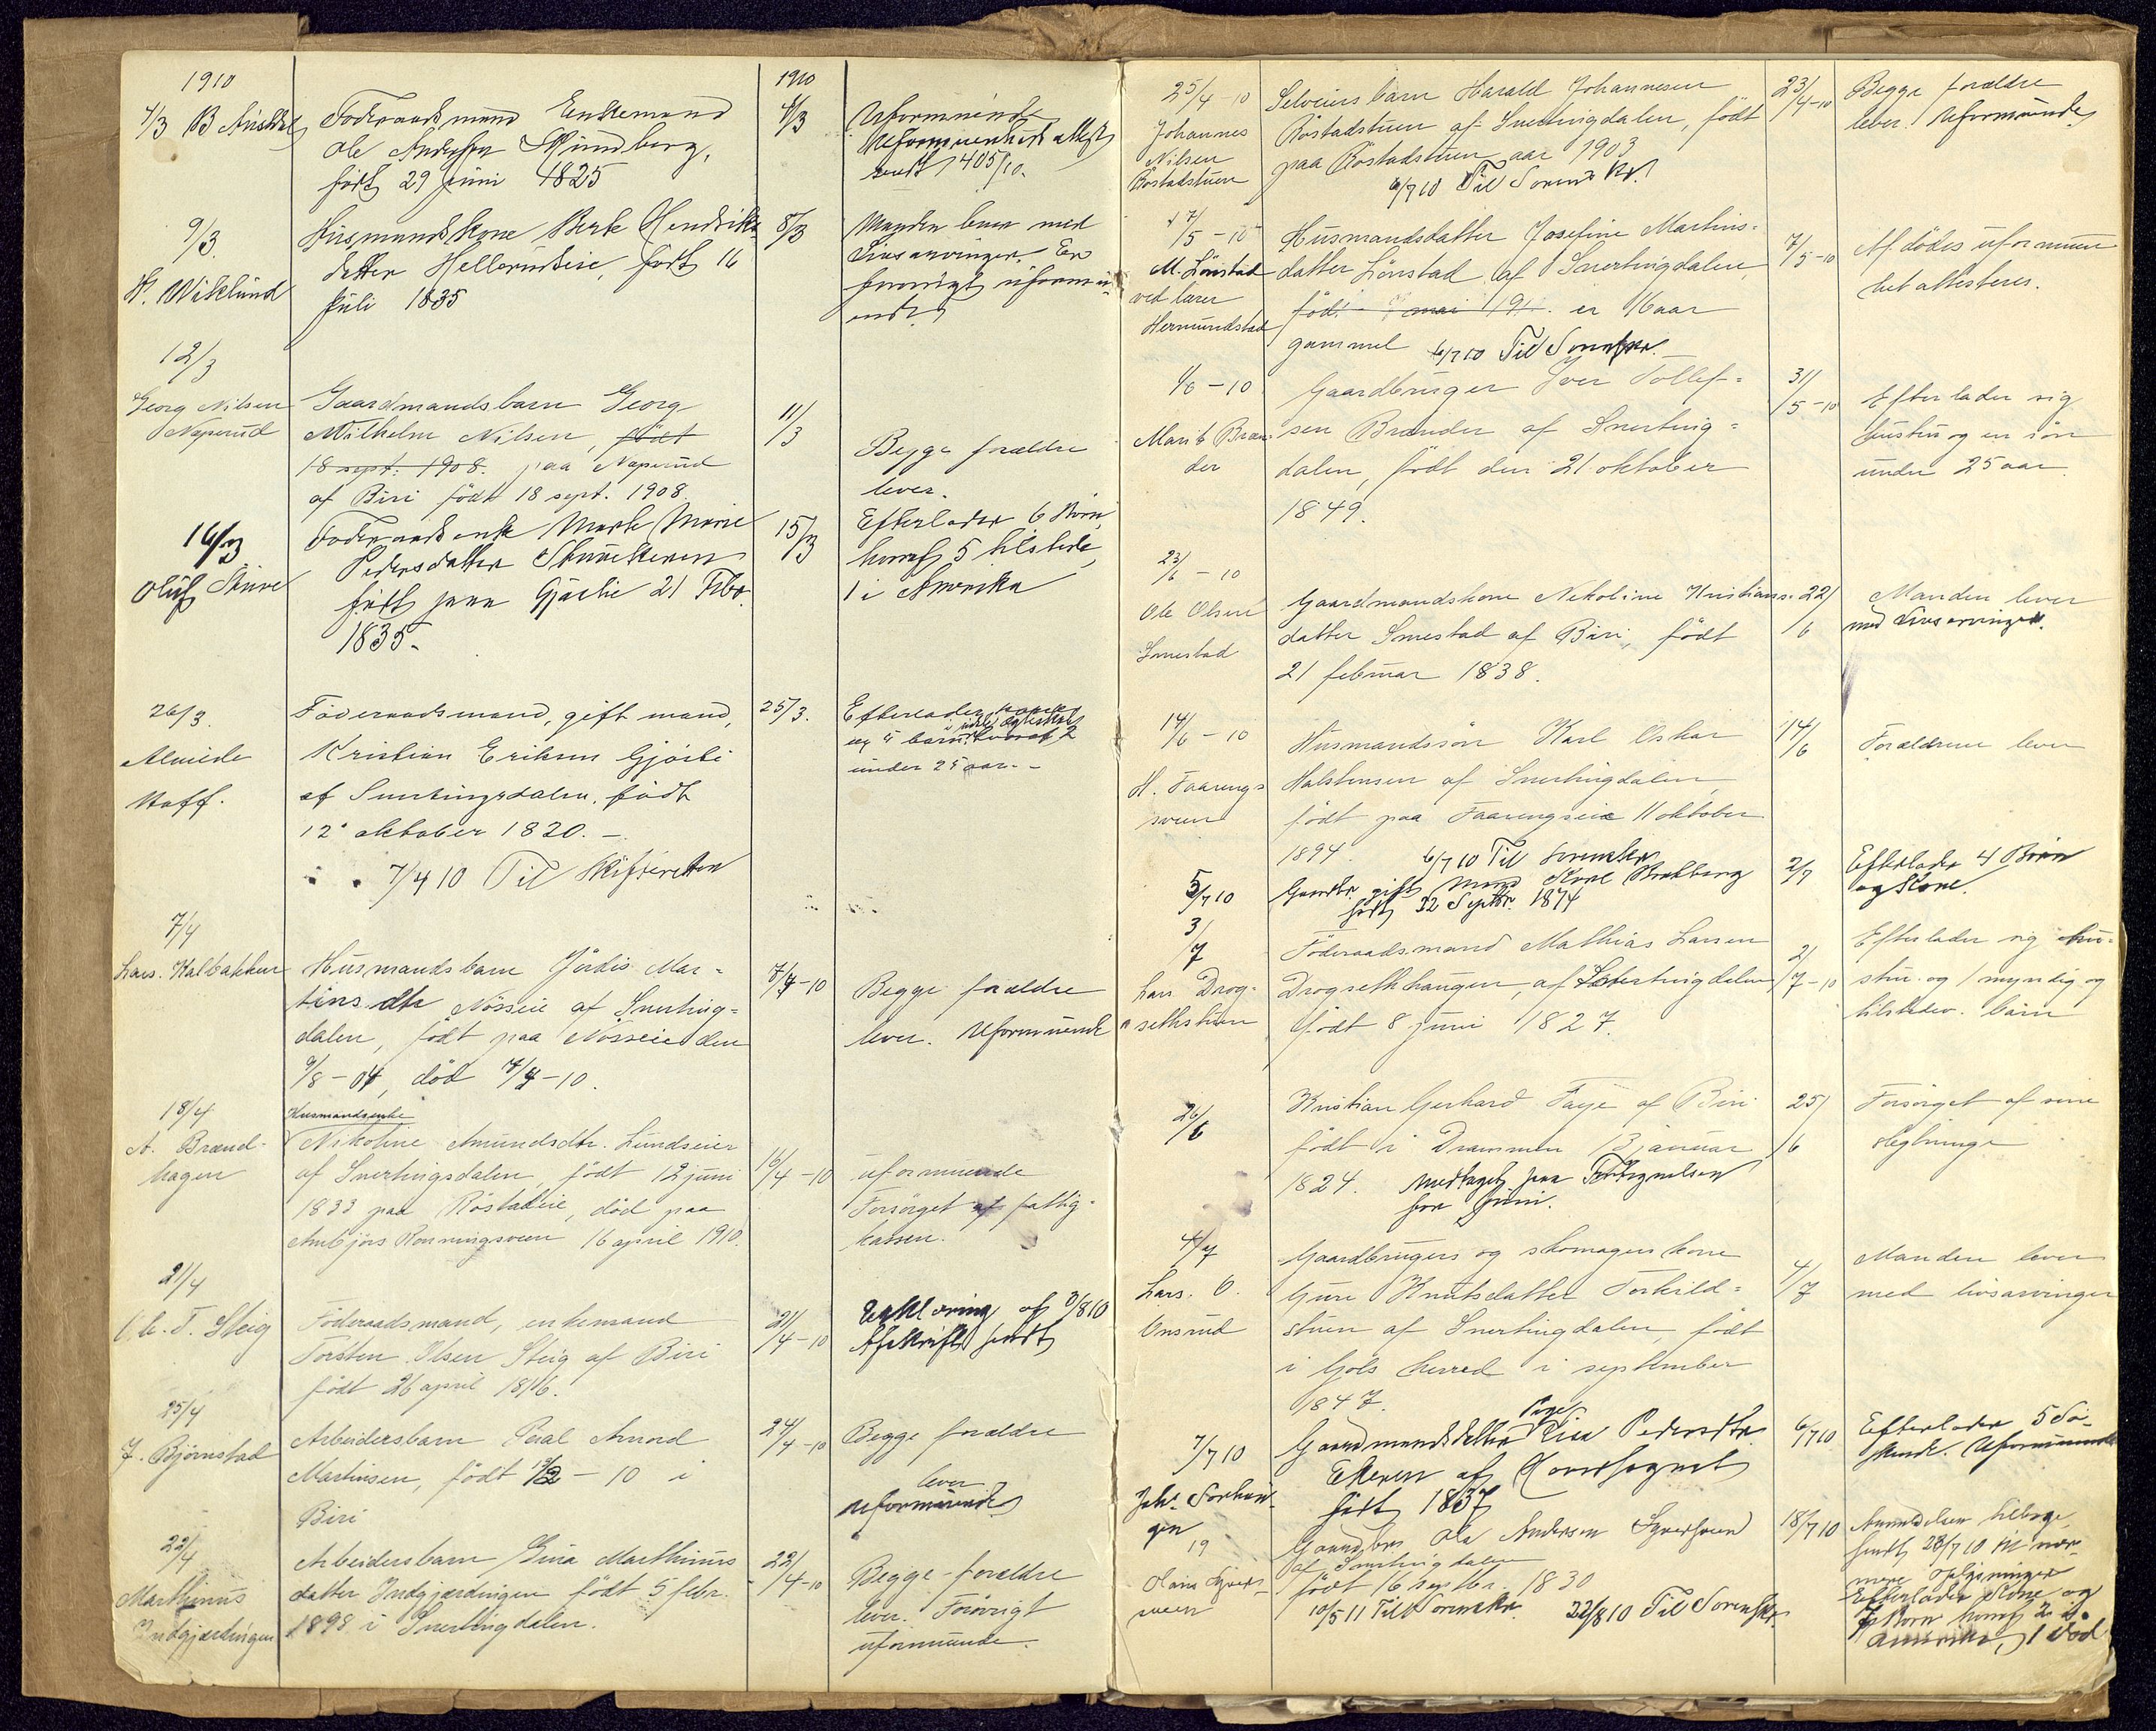 1910
4/3 B
Foderaadsmand Enkemand
Ole Andersen
født 29 juni 1825
1910
4/3
Uformuende
sendt 1405/10.
9/3.
H. Wiklund
Husmandskone Berte Hendriks
datter Helleruseie, født 16
Juli 1835
8/3
Manden lever med
Livsarvinger. Er
forøvrigt uformu
ende
12/3
Georg Nilsen
Næperud
Gaardmandsbarn Georg
Wilhelm Nilsen, født
18 sept. 1908. paa Næperud
af Biri født 18 sept. 1908.
11/3
Begge forældre
lever.
16/3
Oluf Skine
Foderaadsenke Marte Marie
Pedersdatter
født paa Gjøslie 21 Febr.
1835.
15/3
Efterlader 6 Børn
hvoraf 5 tilstede,
1 i Amerika
26/3.
Hoff.
Föderaadsmand, gift mand,
Kristian Eriksen Gjösli
af Snertingsdalen, födt
12 oktober 1820. –
7/4 10 Til Skifteretten
25/3.
Efterlader
og 4 barn hvoraf 2
under 25 aar. –
7/4
Lars. Kalbakken
Husmandsbarn Jördis Mar-
tins dtr Nösseie af Snerting-
dalen, født paa Nösseie den
9/8 – 04, død 7/4 – 10.
7/4 – 10
Begge forældre
lever. Uformuende
18/4
A. Brænd-
hagen
Husmandsenke
Nikoline Amundsdtr. Lundseier
af Snertingsdalen, født 12 juni
1833 paa Röstadeie, død paa
16 april 1910.
16/4 – 10
uformuende
Forsörget af fattig-
kassen.
21/4
O. T. Steig
Föderaadsmand, enkemand
Torsten Olsen Steig af Biri
født 26 april 1816.
21/4 – 10
Erklæring af 3/8 10
Afskrift sendt
25/4
J. Björnstad
Arbeidersbarn Peral Arnord
Martinsen, født 12/2 – 10 i
Biri
24/4 – 10
Begge forældre
lever
Uformuende
22/4
Marthinus
Indgjærdingen
Arbeidersbarn Gina Marthinus
datter Indgjærdingen født 5 febr.
1898 i Snertingdalen.
22/4 – 10
Begge forældre
lever. Forövrigt
uformuende.
25/4 – 10
Johannes
Nilsen
Röstadstuen
Selveiers barn Harald Johannesen
Röstadstuen af Snertingdalen, født
paa Röstadstuen aar 1903
6/7 10 Til Sorenskr.
23/4 – 10
Begge forældre
lever. Uformuende
17/5 – 10
M. Lönstad
ved lærer
Hermundstad
Husmandsdatter Josefine Martins-
datter Lönstad af Snertingdalen,
født mai 191 . er 16 aar
gammel 6/7 10 Til Sorenskr.
7/5 – 10
Af dödes uformuen
het attesteres.
1/6 – 10
Marit Bræn-
der
Gaardbruger Iver Tollef-
sen Brænder af Snerting-
dalen, födt den 21 oktober
1849.
31/5 – 10
Efterlader sig
hustru og en sön
under 25 aar
23/6 – 10
Ole Olsen
Smestad
Gaardmandskone Nikoline Kristians-
datter Smestad af Biri, født
21 februar 1838.
22/6
Manden lever
med Livsarvinger.
14/6 – 10
H. Faarengs
sveen
Husmandssön Karl Oskar
Halstensen af Snertingdalen
født paa Faarengseie 11 oktober
1894. 6/7 10 Til Sorenskr.
14/6
Forældrene lever
5/7 10
Gaardbr. gift mand
født 22 Septbr. 1874
2/7
Efterlader 4 Børn
og Kone.
3/7
Lars Drog-
sethstuen
Föderaadsmand Mathias Larsen
Drogsethhaugen, af Snertingdalen
født 8 juni 1827.
2/7 – 10
Efterlader sig hu-
stru og 1 myndig og
tilstedev. barn
26/6
Kristian Gerhard Faye af Biri
født i Drammen 13 januar
1824. Medtaget paa Fortegnelsen
for juni.
25/6
Forsörget af sine
slegtninge
4/7
Lars. O.
Onsrud
Gaardbrugers og skomagers kone
Guri Knutsdatter Torkild-
stuen af Snertingdalen, født
i Gols herred i september
1847.
4/7
Manden lever
med livsarvinger
7/7 10
Joh.
gen
Pige
Gaardmandsdatter Pedersdtr.
Ekeren af Hovedsognet
født 1837
6/7 10
Efterlader 5 Sø-
skende. Uformuende
19
Gaardbr. Ole Andersen
af Snertingdalen
født 16 septbr. 1830
10/5 11 Til Sorenskr. 22/8 10 Til Sorenskr.
18/7 10
Anmeldelsen tilbage
sendt 28/7 10 til nær-
mere oplysninger
Efterlader Kone og
7 Børn hvoraf 2 i
Amerika, 1 død